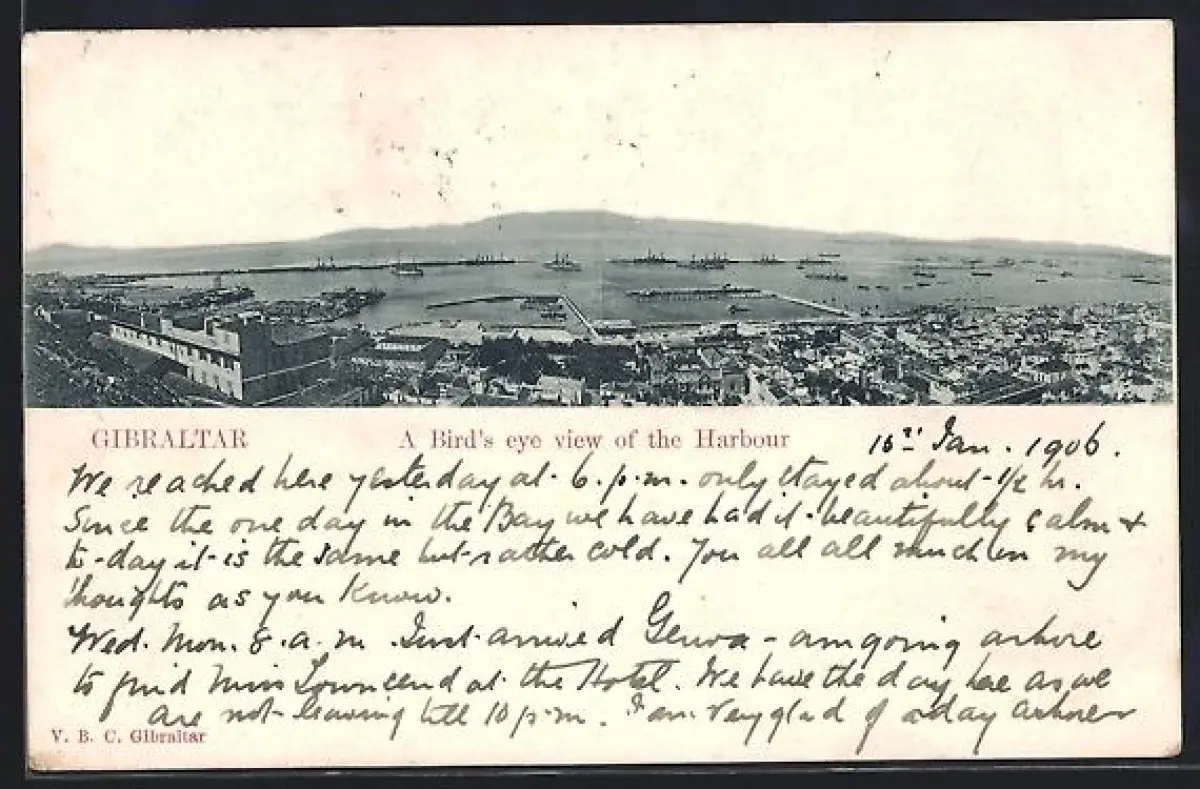 GIBRALTAR A Bird's eye view of the Harbour 15th Jan. 1906.
We reached here yesterday at 6.p.m. only stayed about 1/2 hr.
Since the one day in the Bay we have had it beautifully calm &
to-day it is the same but rather cold. You all all much in my
thoughts as you know.
Wed. Mon. 8.a.m. Just arrived Genoa - am going ashore
to find Miss Townsend at the Hotel. We have the day here as we
are not leaving till 10 p.m. I am very glad of a day ashore
V. B. C. Gibraltar